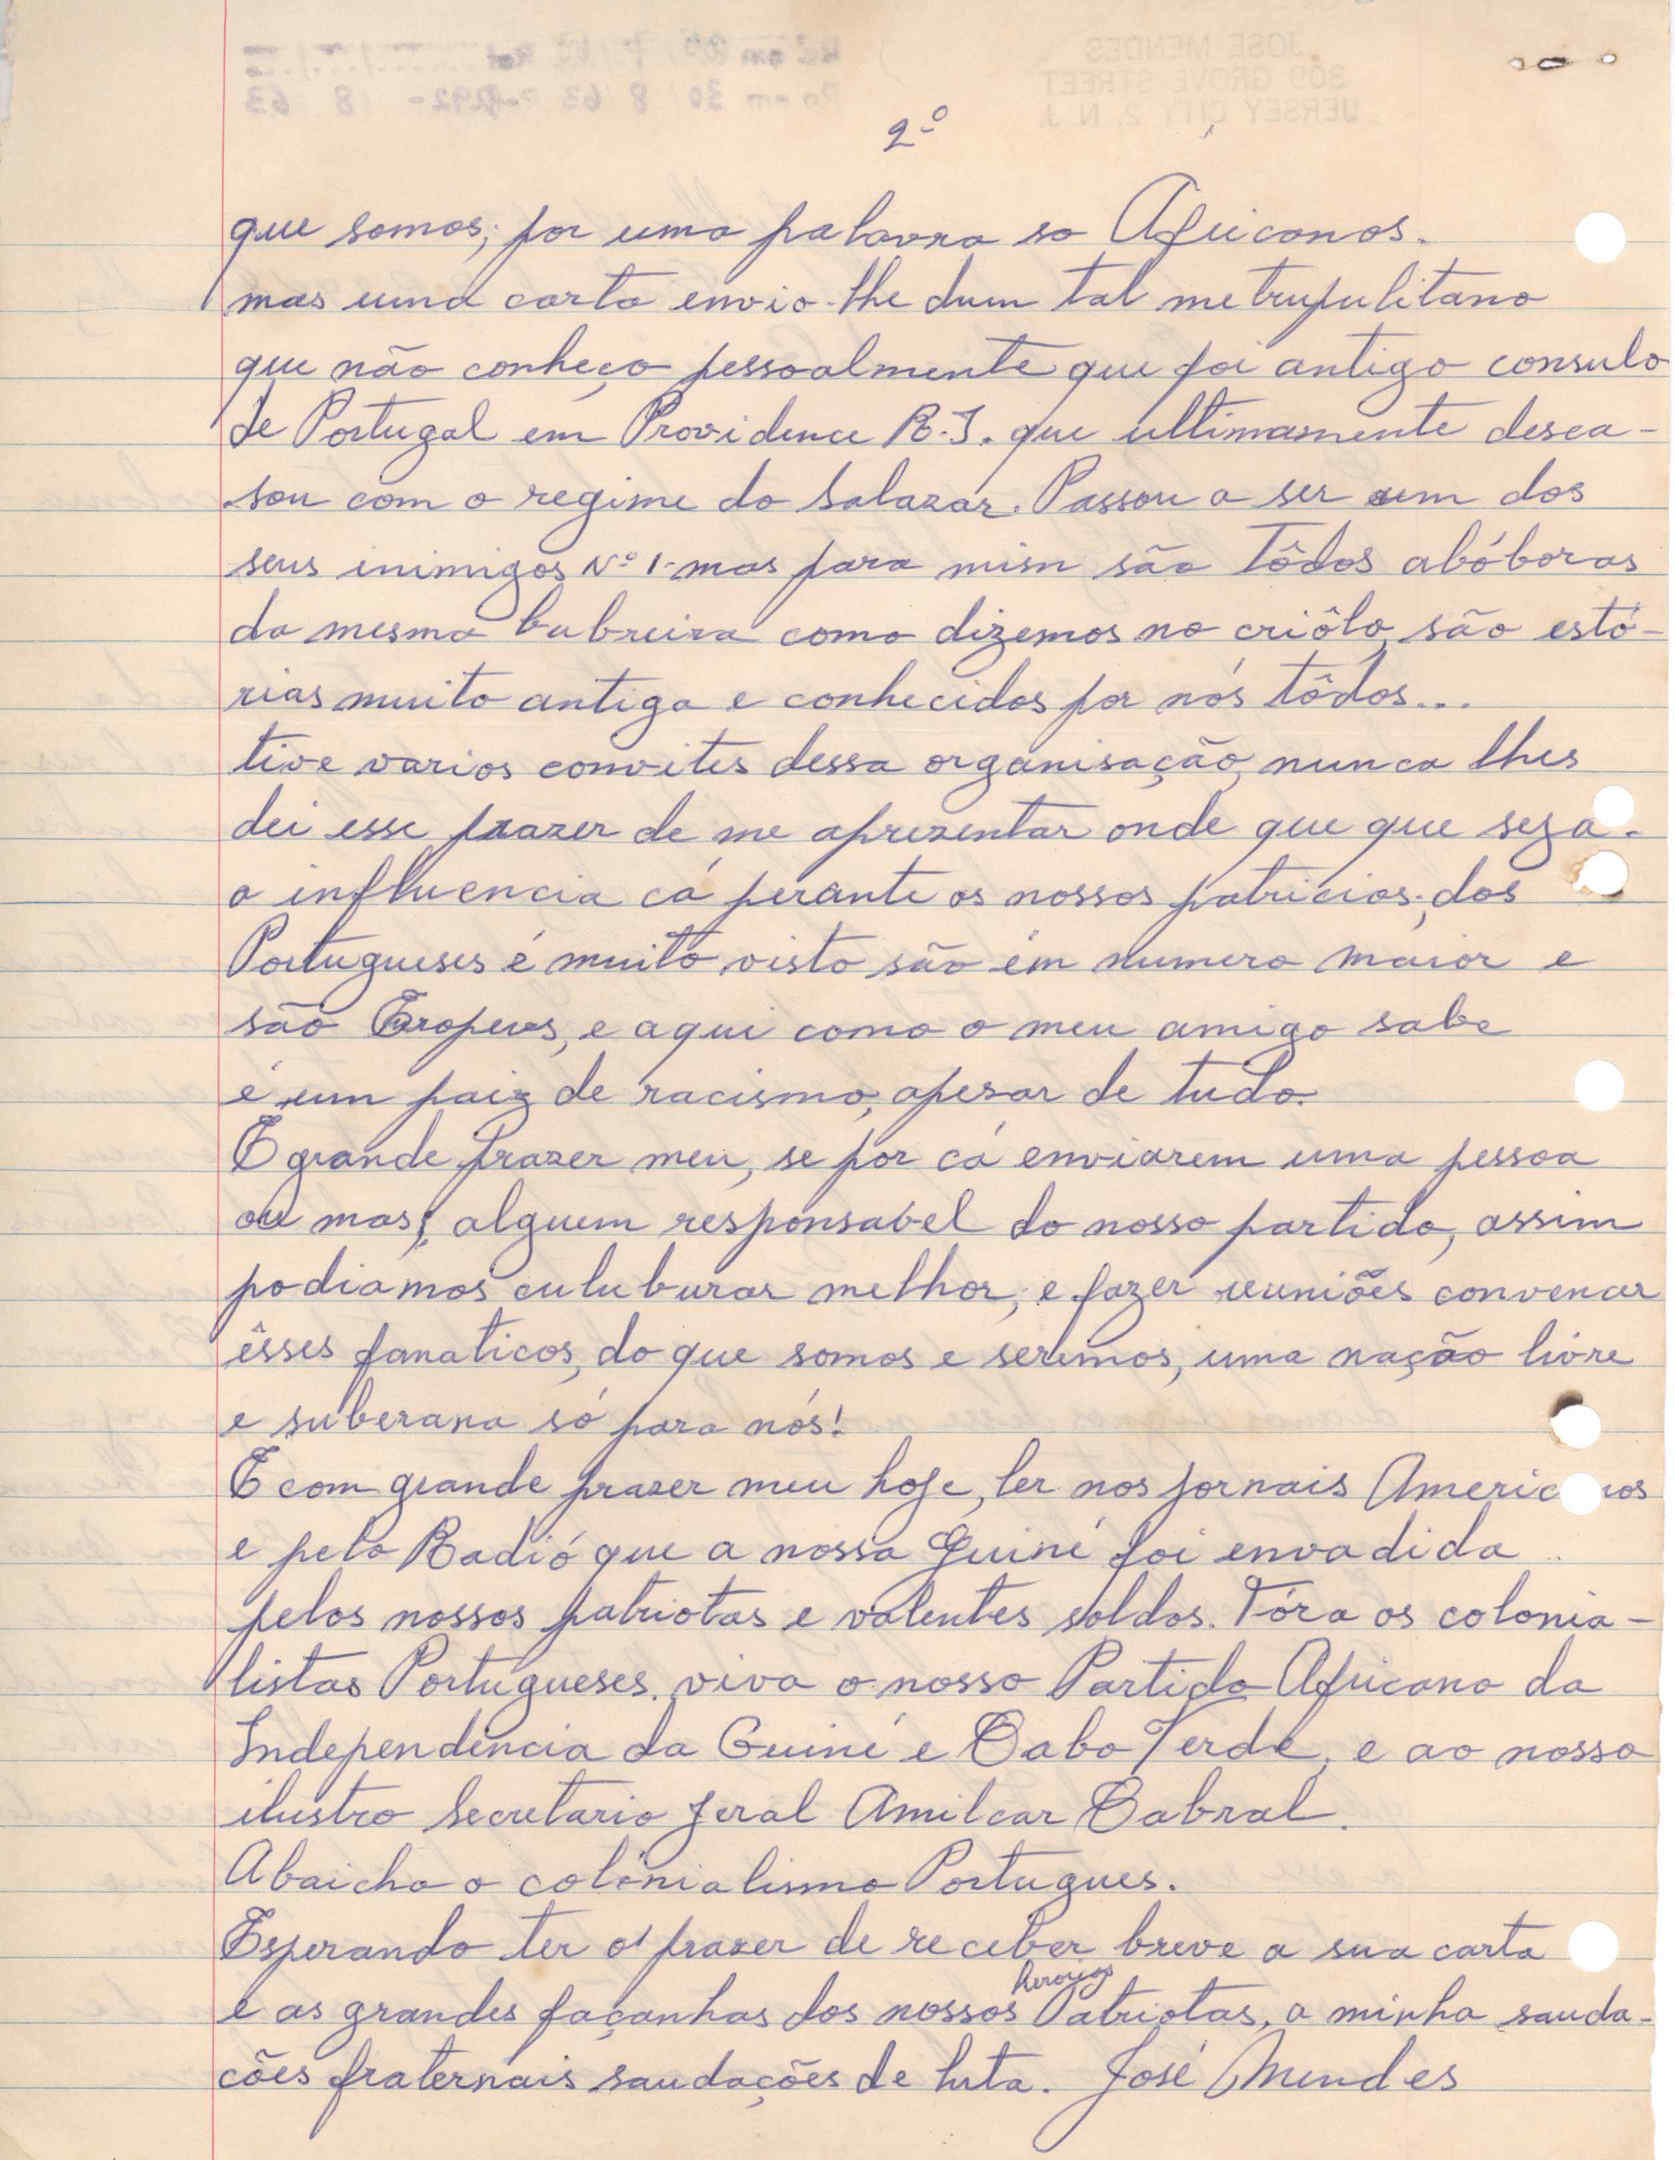 2º
que somos; por uma palavra so Africanos.
mas uma carta envio-lhe dum tal metrupulitano
que não conheço pessoalmente que foi antigo consulo
de Portugal em Providence R.I. que ultimamente desca-
sou com o regime do Salazar. Passou a ser um dos
seus inimigos Nº 1- mas para mim são tôdos abóboras
da mesma bubreira como dizemos no criôlo, são estó-
rias muito antiga e conhecidos por nós tôdos...
tive varios convites dessa organisação, nunca lhes
dei esse prazer de me aprezentar onde que que seza.
a influencia cá perante os nossos patricios; dos
Portugueses é muito visto são em numero maior e
são Eropeus, e aqui como o meu amigo sabe
é um paiz de racismo, apesar de tudo.
E grande prazer meu, se por cá enviarem uma pessoa
ou mas; alguem responsavel do nosso partido, assim
podiamos culuburar melhor, e fazer reuniões convencer
êsses fanaticos, do que somos e seremos, uma nação livre
e suberana só para nós!
E com grande prazer meu hoje, ler nos jornais Americanos
e pelo Radió que a nossa Guiné foi envadida
pelos nossos patriotas e valentes soldos. Fóra os colonia-
listas Portugueses. viva o nosso Partido Africano da
Independência da Guiné e Cabo Verde, e ao nosso
ilustro Secretario Jeral Amilcar Cabral.
Abaicho o colónialismo Portugues.
Esperando ter o prazer de receber breve a sua carta
heroijos
e as grandes façanhas dos nossos Patriotas, a minha sauda-
cões fraternais saudações de luta. José Mendes
JOSE MENDES
309 GROVE STREET
JERSEY CITY 2, N. J.